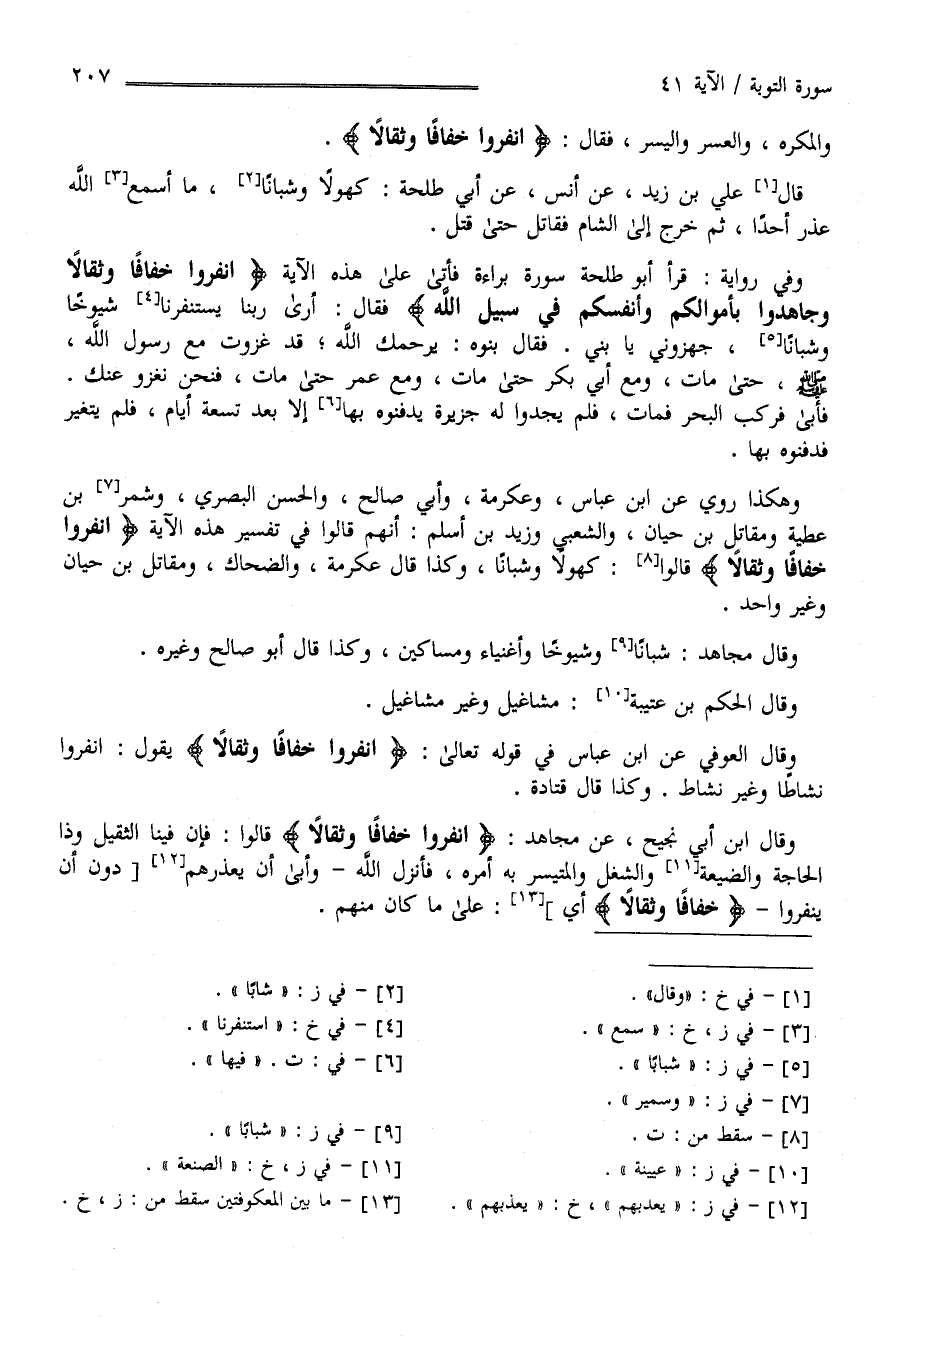 سورة التوبة / الآية ٤١ ٢٠٧
والمكره ، والعسر واليسر ، فقال : ﴿ انفروا خفافًا وثقالًا ﴾ .
قال[١] علي بن زيد ، عن أنس ، عن أبي طلحة : كهولًا وشبانًا[٢] ، ما أسمع[٣] اللَّه
عذر أحدًا ، ثم خرج إلىٰ الشام فقاتل حتىٰ قتل .
وفي رواية : قرأ أبو طلحة سورة براءة فأتىٰ علىٰ هذه الآية ﴿ انفروا خفافًا وثقالًا
وجاهدوا بأموالكم وأنفسكم في سبيل اللَّه ﴾ فقال : أرىٰ ربنا يستنفرنا[٤] شيوخًا
وشبانًا[٥] ، جهزوني يا بني . فقال بنوه : يرحمك اللَّه ؛ قد غزوت مع رسول اللَّه ،
ﷺ ، حتىٰ مات ، ومع أبي بكر حتىٰ مات ، ومع عمر حتىٰ مات ، فنحن نغزو عنك .
فأبىٰ فركب البحر فمات ، فلم يجدوا له جزيرة يدفنوه بها[٦] إلا بعد تسعة أيام ، فلم يتغير
فدفنوه بها .
وهكذا روي عن ابن عباس ، وعكرمة ، وأبي صالح ، والحسن البصري ، وشمر[٧] بن
عطية ومقاتل بن حيان ، والشعبي وزيد بن أسلم : أنهم قالوا في تفسير هذه الآية ﴿ انفروا
خفافًا وثقالًا ﴾ قالوا[٨] : كهولًا وشبانًا ، وكذا قال عكرمة ، والضحاك ، ومقاتل بن حيان
وغير واحد .
وقال مجاهد : شبانًا[٩] وشيوخًا وأغنياء ومساكين ، وكذا قال أبو صالح وغيره .
وقال الحكم بن عتيبة[١٠] : مشاغيل وغير مشاغيل .
وقال العوفي عن ابن عباس في قوله تعالىٰ : ﴿ انفروا خفافًا وثقالًا ﴾ يقول : انفروا
نشاطًا وغير نشاط . وكذا قال قتادة .
وقال ابن أبي نجيح ، عن مجاهد : ﴿ انفروا خفافًا وثقالًا ﴾ قالوا : فإن فينا الثقيل وذا
الحاجة والضيعة[١١] والشغل والمتيسر به أمره ، فأنزل اللَّه – وأبىٰ أن يعذرهم[١٢] [ دون أن
ينفروا – ﴿ خفافًا وثقالًا ﴾ أي ][١٣] : علىٰ ما كان منهم .
[١] – في خ : «وقال» . [٢] – في ز : « شابًا » .
[٣] – في ز ، خ : « سمع » . [٤] – في خ : « استنفرنا » .
[٥] – في ز : « شبابًا » . [٦] – في : ت . « فيها » .
[٧] – في ز : « وسمير » .
[٨] – سقط من : ت . [٩] – في ز : « شبابًا » .
[١٠] – في ز : « عيينة » . [١١] – في ز ، خ : « الصنعة » .
[١٢] – في ز : « يعدبهم » ، خ : « يعذبهم » . [١٣] – ما بين المعكوفتين سقط من : ز ، خ .